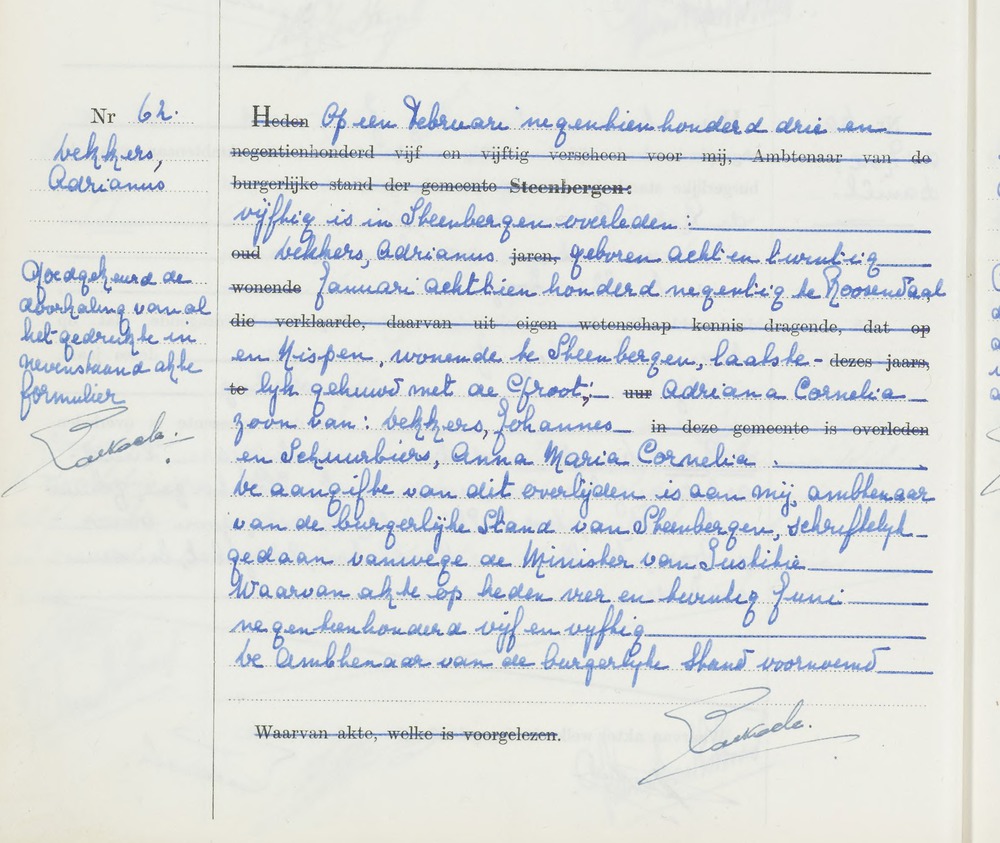 Nr 62.
Dekkers,
Adrianus
Goedgekeurd de
doorhaling van al
het gedrukte in
nevenstaand akte
formulier
Heden Op een Februari negentienhonderd drie en
negentienhonderd vijf en vijftig verscheen voor mij, Ambtenaar van de
burgerlijke stand der gemeente Steenbergen:
vijftig is in Steenbergen overleden:
oud Dekkers, Adrianus jaren, geboren acht en twintig
wonende Januari achttien honderd negentig te Roosendaal
die verklaarde, daarvan uit eigen wetenschap kennis dragende, dat op
en Nispen, wonende te Steenbergen, laatste- dezes jaars,
te lijk gehuwd met de Groot; uur Adriana Cornelia
zoon van: Dekkers, Johannes in deze gemeente is overleden
en Schuurbiers, Anna Maria Cornelia.
De aangifte van dit overlijden is aan mij, ambtenaar
van de burgerlijke Stand van Steenbergen, schriftelijk
gedaan vanwege de Minister van Justitie
Waarvan akte op heden vier en twintig Juni
negentienhonderd vijf en vijftig
De Ambtenaar van de burgerlijke Stand voornoemd
Waarvan akte, welke is voorgelezen.